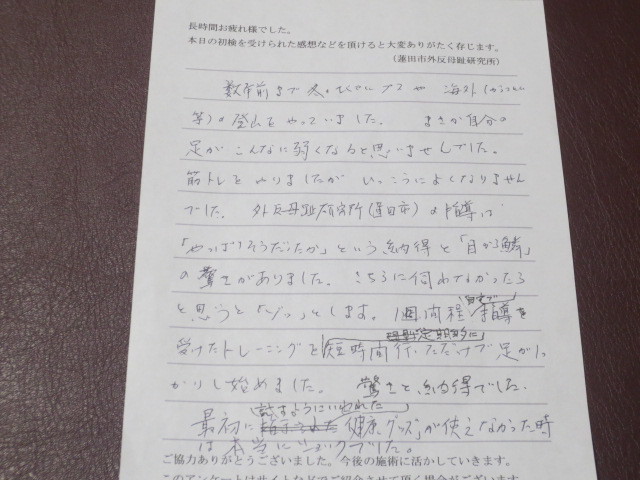 長時間お疲れ様でした。
本日の初検を受けられた感想などを頂けると大変ありがたく存じます。
(蓮田市外反母趾研究所)
数年前まで冬の アルプスや 海外(
等)の登山をやっていました。 まさか自分の
足がこんなに弱くなると思いませんでした。
筋トレをやりましたが いっこうによくなりません
でした。 外反母趾研究所(蓮田市)の指導は
「やっぱりそうだったか」という納得と「目から鱗」
の驚きがありました。 こちらに伺わなかったら
と思うと「ゾッ」とします。 1週間程 自宅で 指導を
受けたトレーニングを 毎日定期的に 短時間行っただけで足がしっ
かりし始めました。 驚きと納得でした。
最初に 試すようにいわれた 「健康グッズ」が使えなかった時
は本当にショックでした。
ご協力ありがとうございました。今後の施術に活かしていきます。
このアンケートはサイトなどでご紹介させて頂く場合がございます。